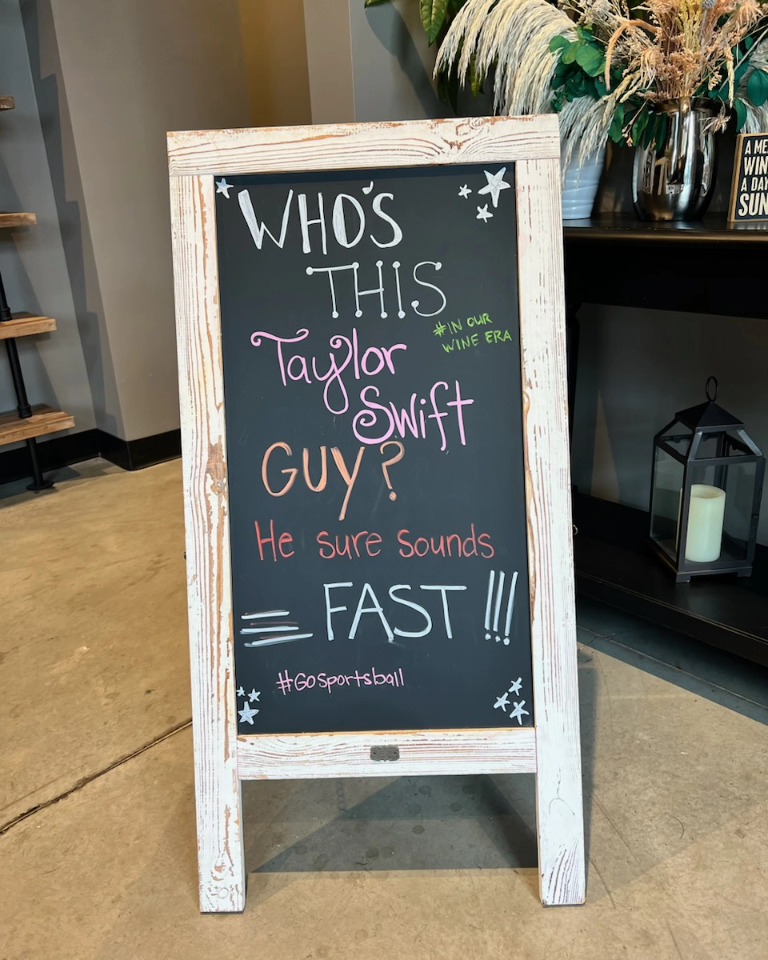 WHO'S
THIS
#IN OUR
WINE ERA
Taylor
Swift
GUY?
He sure sounds
FAST!!!
#GOSportsball
A ME
WIN
A DAY
SUN